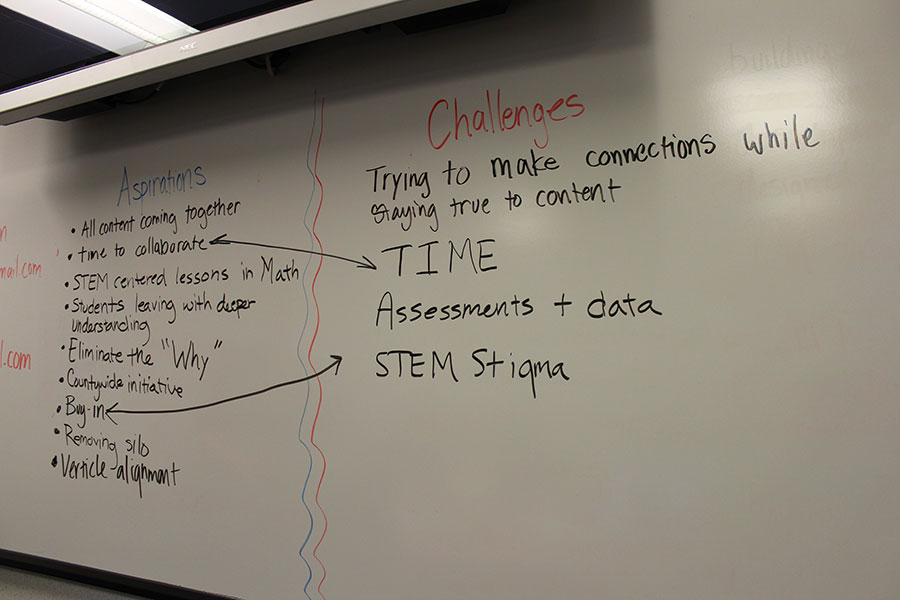 NEC
Aspirations
• All content coming together
• time to collaborate
• STEM centered lessons in Math
• Students leaving with deeper
understanding
• Eliminate the "Why"
• Countywide initiative
• Buy-in
• Removing silo
• Verticle-alignment
mail.com
l.com
Challenges
Trying to make connections while
staying true to content
TIME
Assessments + data
STEM Stigma
building